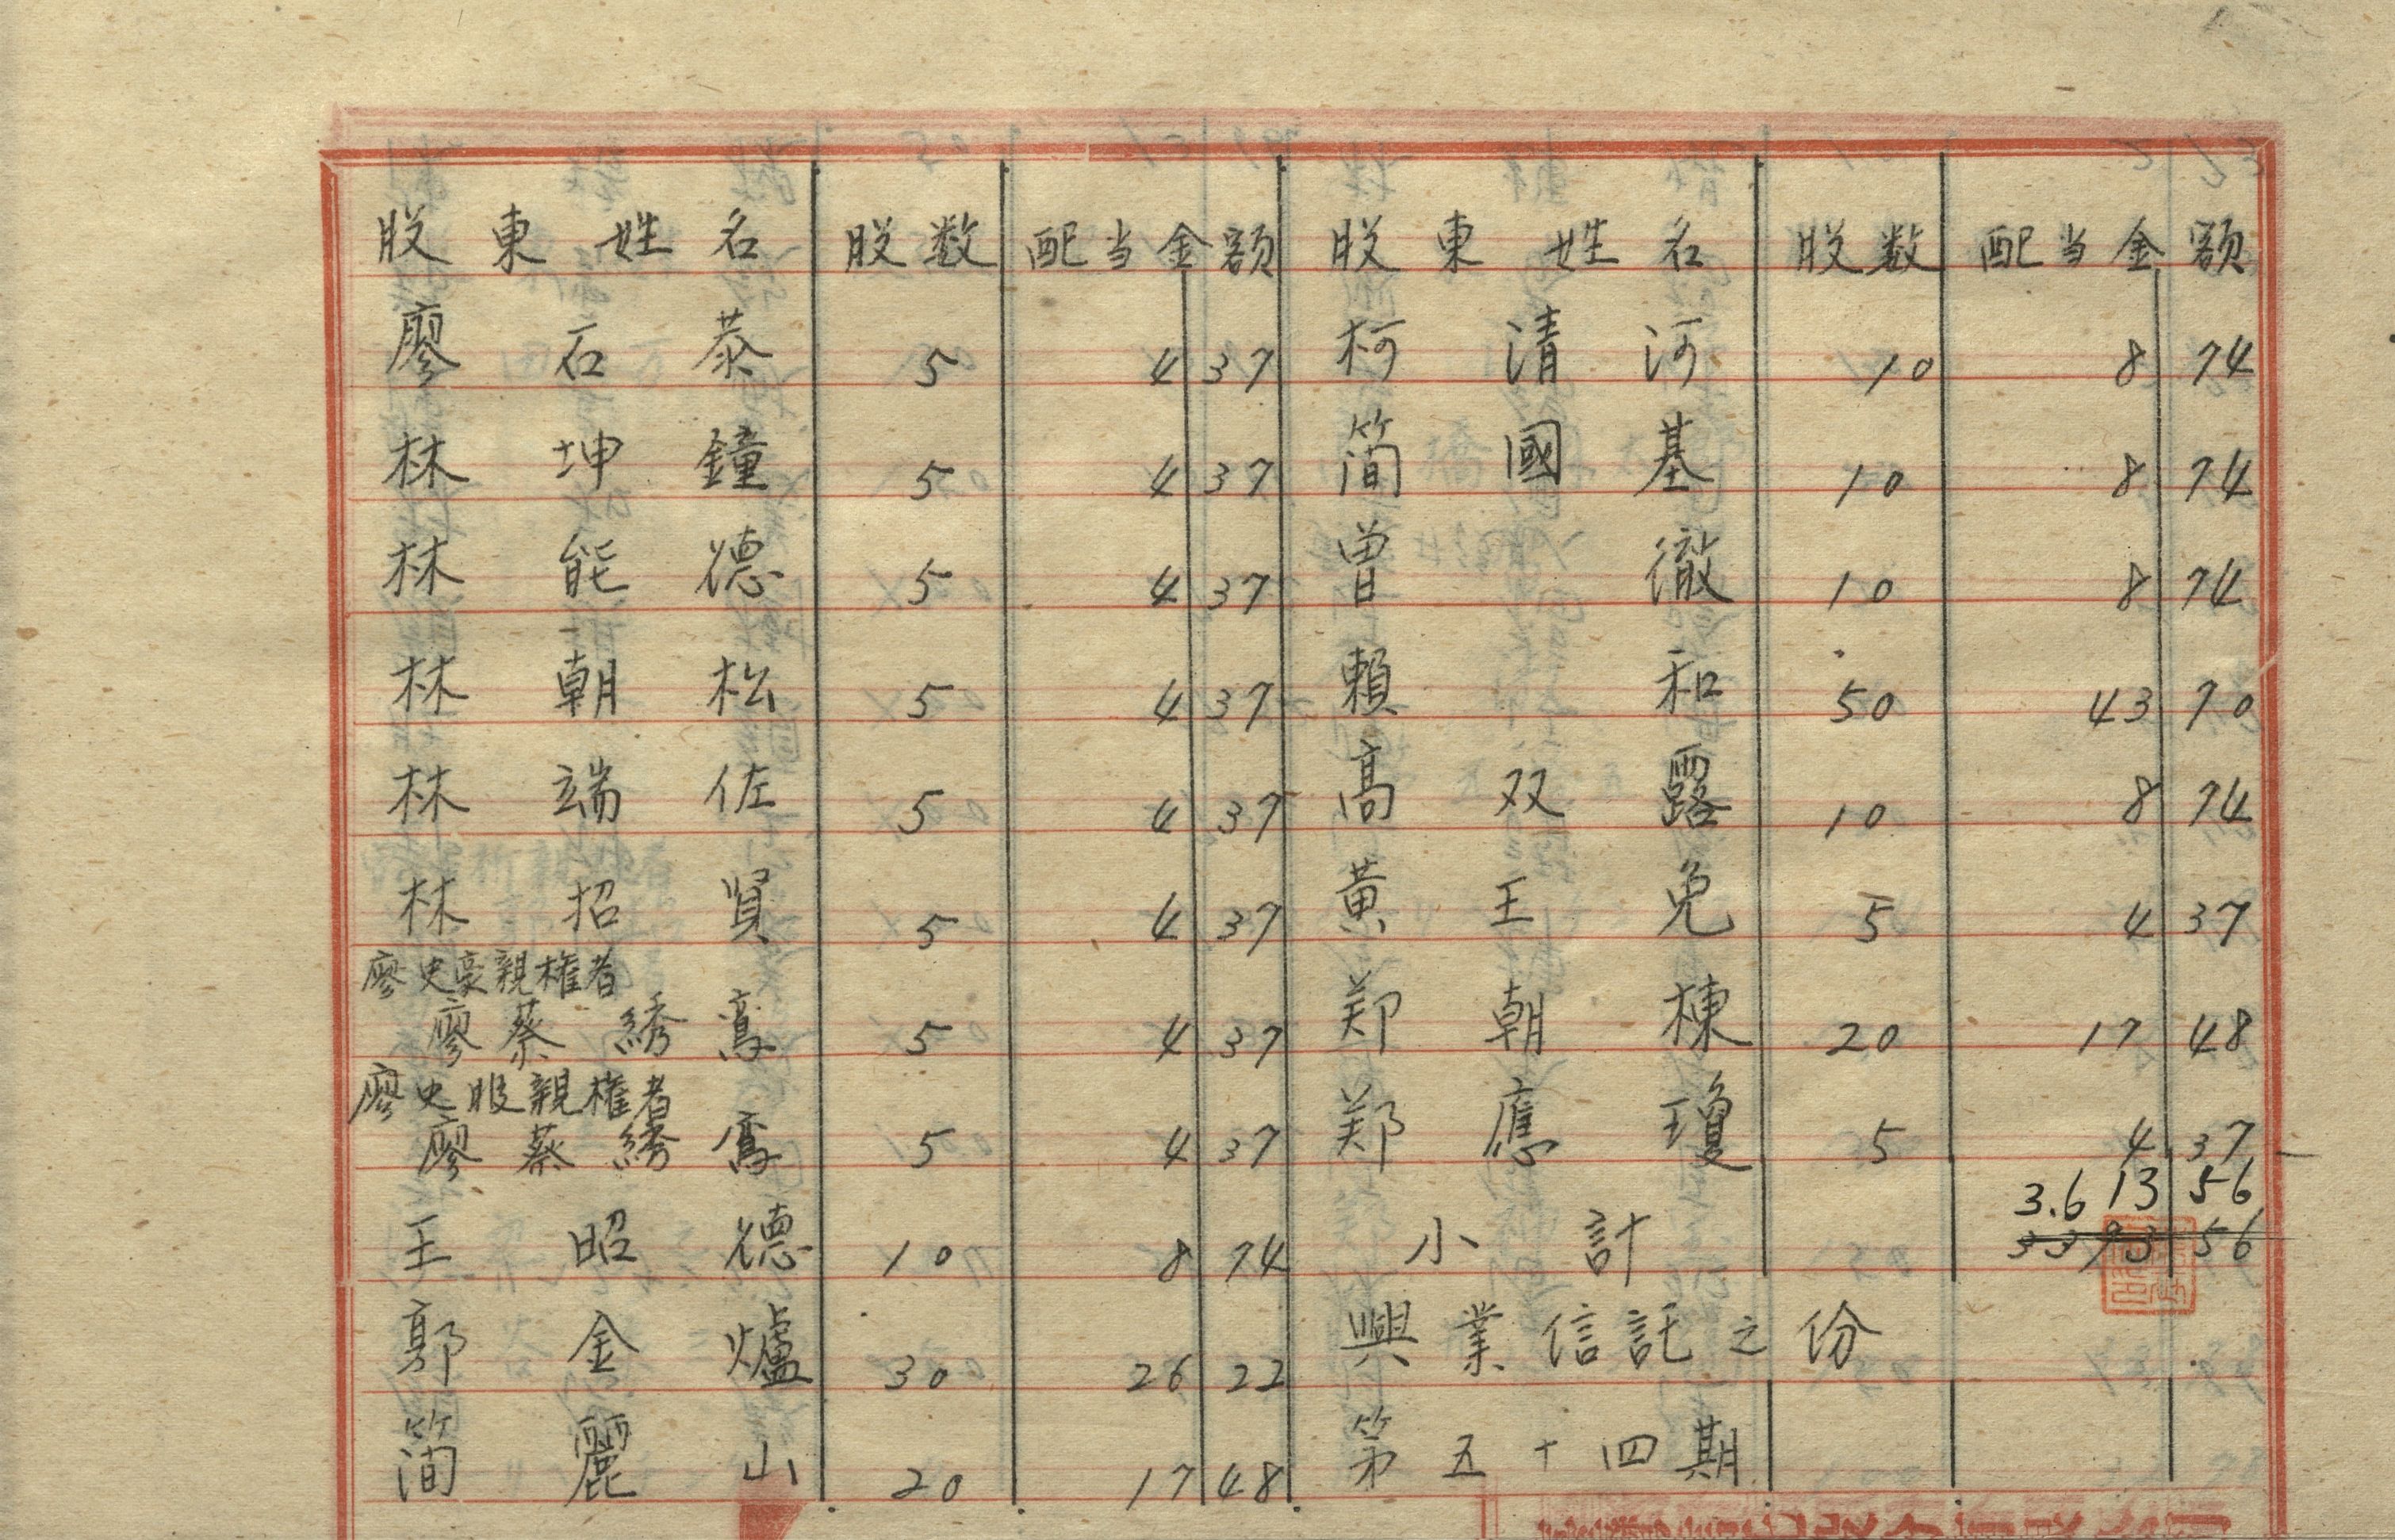 股東姓名 股数 配当金額
廖石泰 5 4 37
林坤鐘 5 4 37
林能德 5 4 37
林朝松 5 4 37
林端佐 5 4 37
林招賢 5 4 37
廖史豪親權者
廖蔡綉鸞 5 4 37
廖史 親權者
廖蔡綉鸞 5 4 37
王昭德 10 8 74
郭金爐 30 26 22
简麗山 20 17 48
股東姓名 股数 配当金額
柯清河 10 8 74
简國基 10 8 74
曽徹 10 8 74
賴和 50 43 70
高双露 10 8 74
黃王兔 5 4 37
郑朝棟 20 17 48
郑應瓊 5 4 37
3.613 56
小計 3393 56
興業信託之份
第五十四期